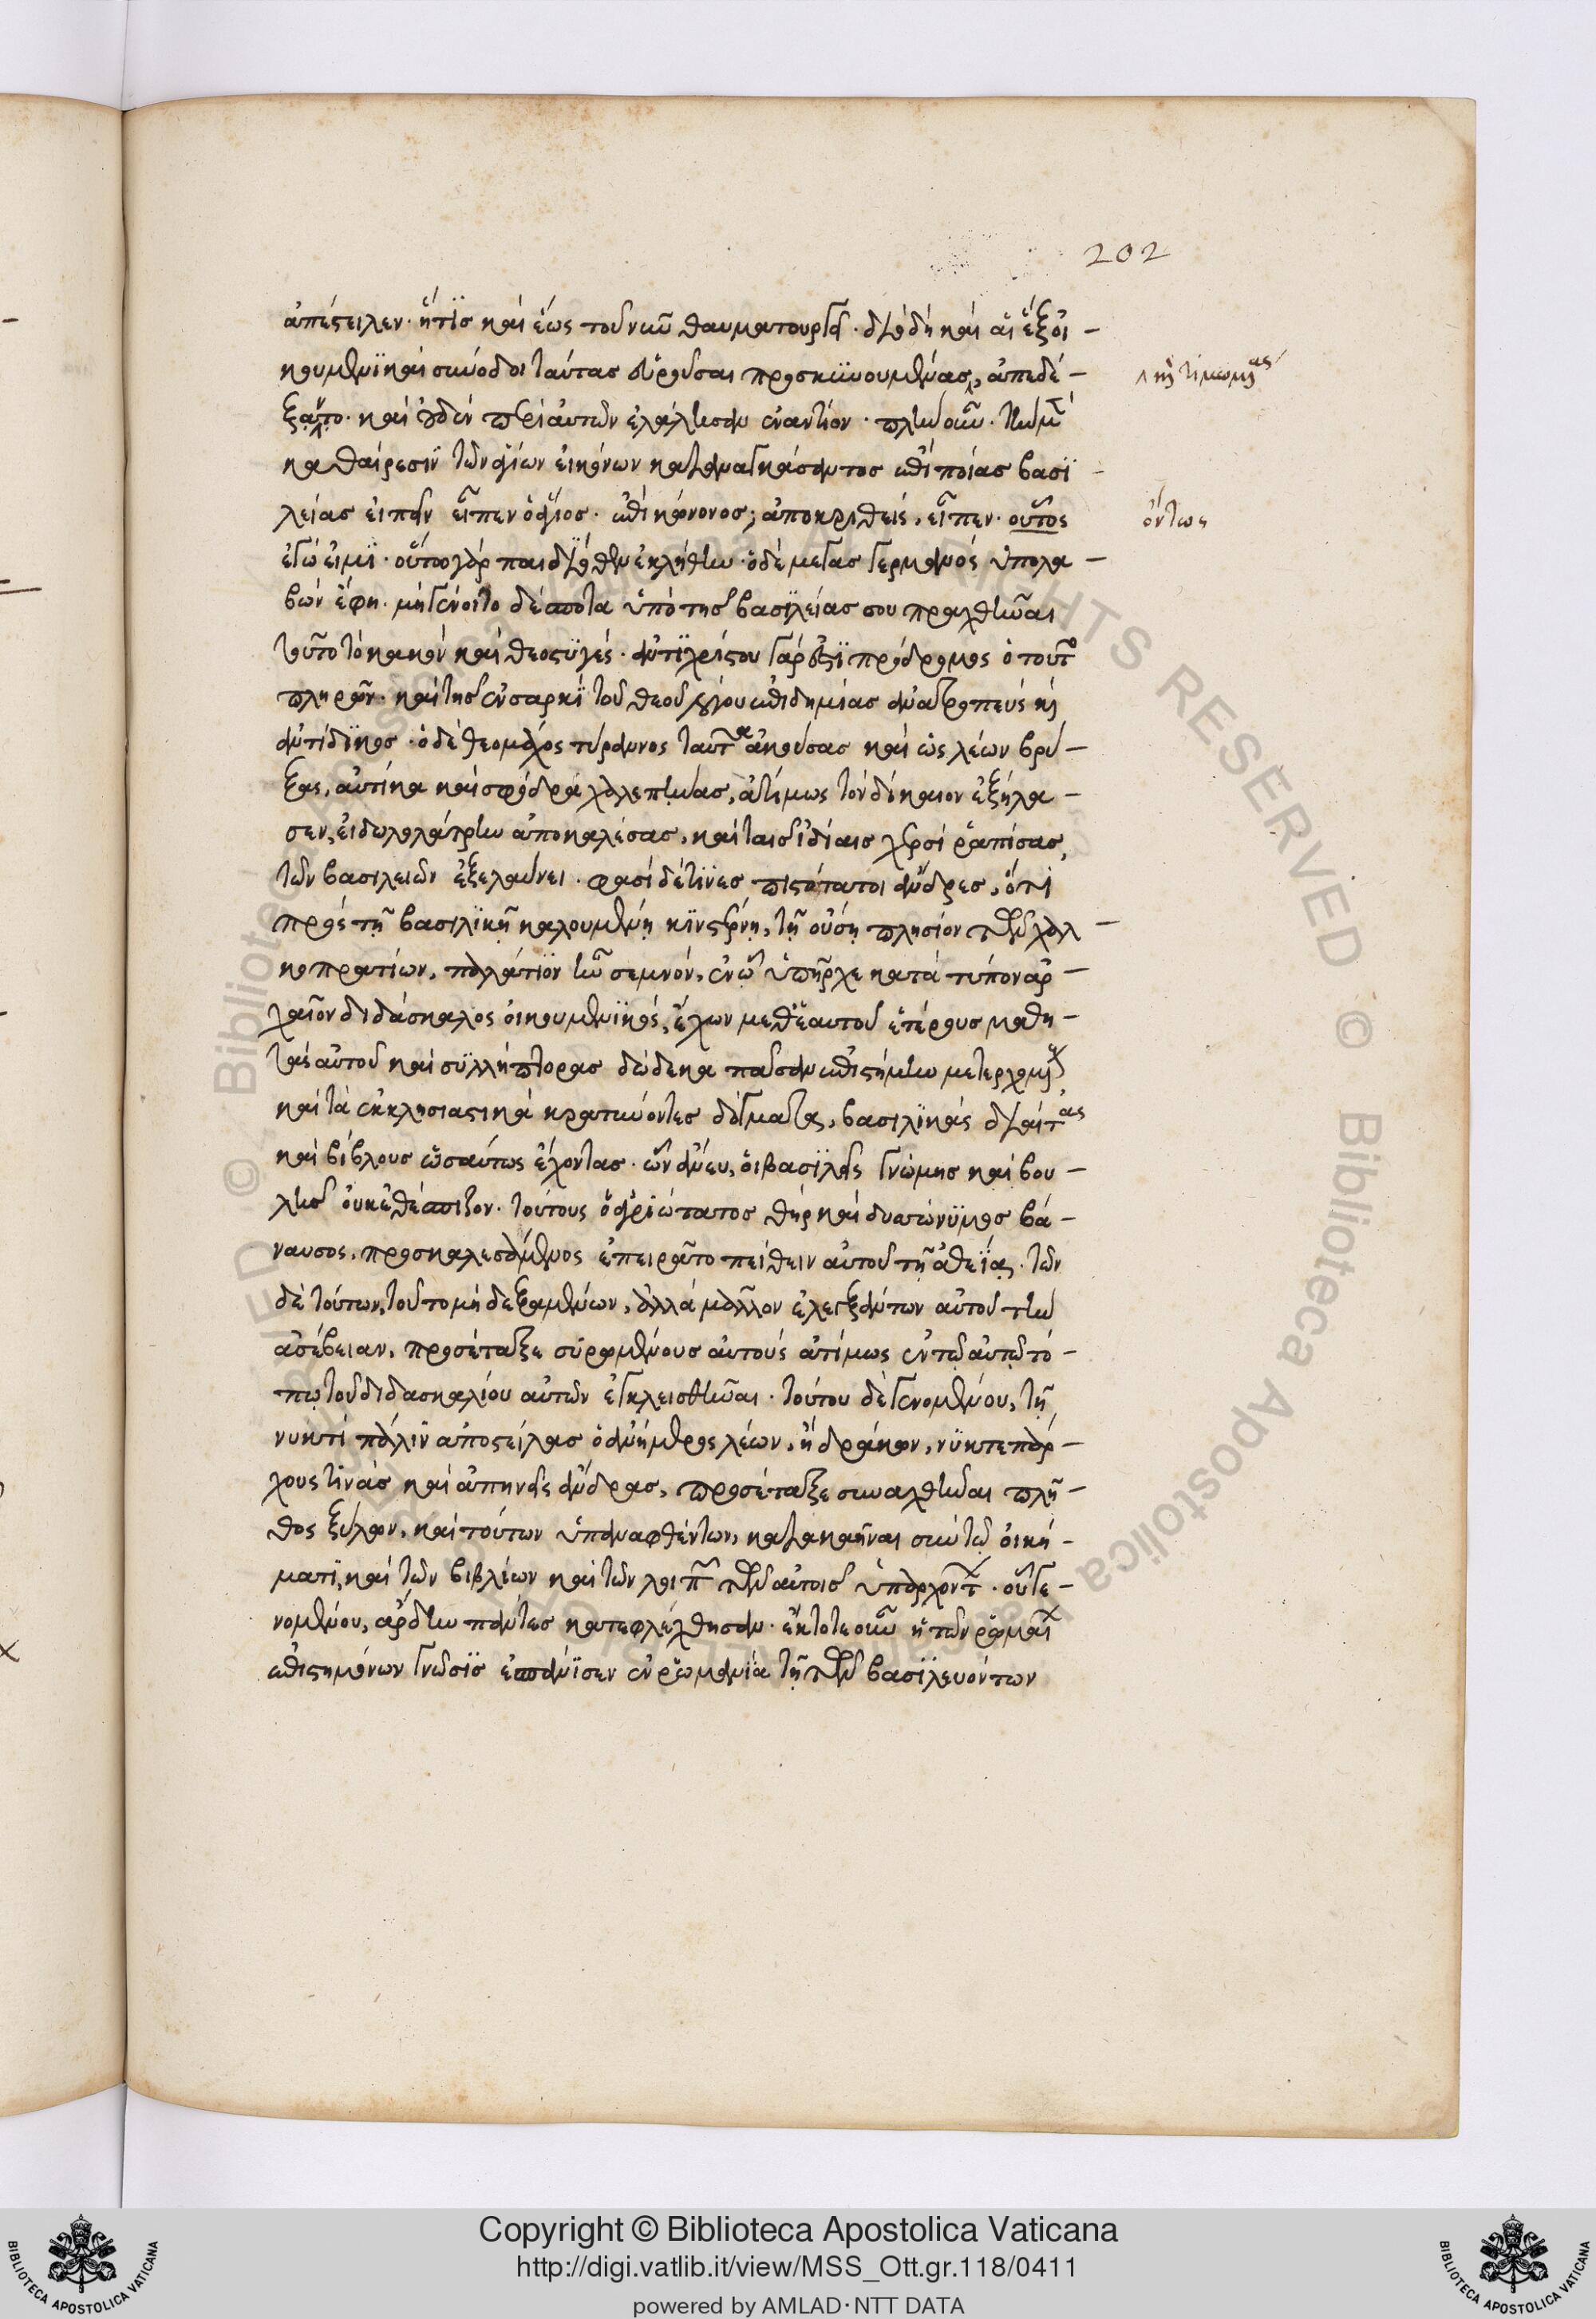 202
ἀπέστειλεν· ἥτις καὶ ἕως τοῦ νῦν θαυματουργεῖ· διὸ δὴ καὶ αἱ ἓξ οἰ-
κουμενικαὶ σύνοδοι ταύτας εὑροῦσαι προσκυνουμένας, ἀπεδέ-
ξαντο· καὶ οὐδὲν περὶ αὐτῶν ἐλάλησαν ἐναντίον· πλὴν οὖν· τὴν
καθαίρεσιν τῶν ἁγίων εἰκόνων καταναγκάσαντος ἐπὶ ποίας βασι
λείας εἰπεῖν εἶπεν ὁ ἅγιος· ἐπὶ κόνονος; ἀποκριθείς, εἶπεν· οὗτος
ἐγὼ εἰμί· οὕτω γὰρ παιδιόθεν ἐκλήθην· ὁ δὲ μέγας γερμανὸς ὑπολα-
βὼν ἔφη· μὴ γένοιτο δέσποτα ὑπὸ τῆς βασιλείας σου πραχθῆναι
τοῦτο τὸ κακὸν καὶ θεοστυγές· ἀντιχρίστου γάρ ἐστι πρόδρομος ὁ τοῦτο
πληρῶν· καὶ τῆς ἐν σαρκὶ τοῦ θεοῦ λόγου ἐπιδημίας ἀνατροπεὺς καὶ
ἀντίδικος· ὁ δὲ θεομάχος τύραννος ταῦτα ἀκούσας καὶ ὡς λέων βρύ-
ξας, αὐτίκα καὶ σφόδρα χαλεπήνας, ἀτίμως τὸν δίκαιον ἐξήλα-
σεν, εἰδωλολάτρην ἀποκαλέσας, καὶ ταῖς ἰδίαις χερσὶ ῥαπίσας,
τῶν βασιλειῶν ἐξελαύνει· φασὶ δέ τινες πιστότατοι ἄνδρες, ὅτι
πρὸς τῇ βασιλικῇ καλουμένῃ κινστέρνῃ, τῇ οὔσῃ πλησίον τῶν χαλ-
κοπρατίων, παλάτιον ἦν σεμνόν, ἐν ᾧ ὑπῆρχε κατὰ τύπον ἀρ-
χαῖον διδάσκαλος οἰκουμενικός, ἔχων μεθ' ἑαυτοῦ ἑτέρους μαθη-
τὰς αὐτοῦ καὶ συλλήπτορας δώδεκα πᾶσαν ἐπιστήμην μετερχομένους
καὶ τὰ ἐκκλησιαστικὰ κρατύνοντες δόγματα, βασιλικὰς διαίτας
καὶ βίβλους ὡσαύτως ἔχοντας· ὧν ἄνευ, οἱ βασιλεῖς γνώμης καὶ βου-
λῆς οὐκ ἐθέσπιζον· τούτους ὁ ἀγριώτατος θὴρ καὶ δυσώνυμος βά-
ναυσος, προσκαλεσάμενος ἐπειρᾶτο πείθειν αὐτοῦ τῇ ἀθεΐᾳ· τῶν
δὲ τούτων, τοῦτο μὴ δεξαμένων, ἀλλὰ μᾶλλον ἐλεγξάντων αὐτοῦ τὴν
ἀσέβειαν, προσέταξε συρομένους αὐτοὺς ἀτίμως ἐν τῷ αὐτῷ τό-
πῳ τοῦ διδασκαλίου αὐτῶν ἐγκλεισθῆναι· τούτου δὲ γενομένου, τῇ
νυκτὶ πάλιν ἀποστείλας ὁ ἀνήμερος λέων, ἢ δράκων, νυκτεπάρ-
χους τινὰς καὶ ἀπηνεῖς ἄνδρας, προσέταξε συναχθῆναι πλῆ-
θος ξύλων, καὶ τούτων ὑπαναφθέντων, κατακαῆναι σὺν τῷ οἰκή-
ματι, καὶ τῶν βιβλίων καὶ τῶν λοιπῶν τῶν αὐτοῖς ὑπαρχόντων· οὗ γε-
νομένου, ἄρδην πάντες κατεφλέχθησαν· ἔκτοτε οὖν ἡ τῶν ῥωμαίων
ἐπιστημόνων γνῶσις ἐσπάνισεν ἐν ῥωμανίᾳ τῇ τῶν βασιλευόντων
καὶ τιμωμένας
ὄντως
Copyright © Biblioteca Apostolica Vaticana
http://digi.vatlib.it/view/MSS_Ott.gr.118/0411
powered by AMLAD·NTT DATA
BIBLIOTECA APOSTOLICA VATICANA
BIBLIOTECA APOSTOLICA VATICANA